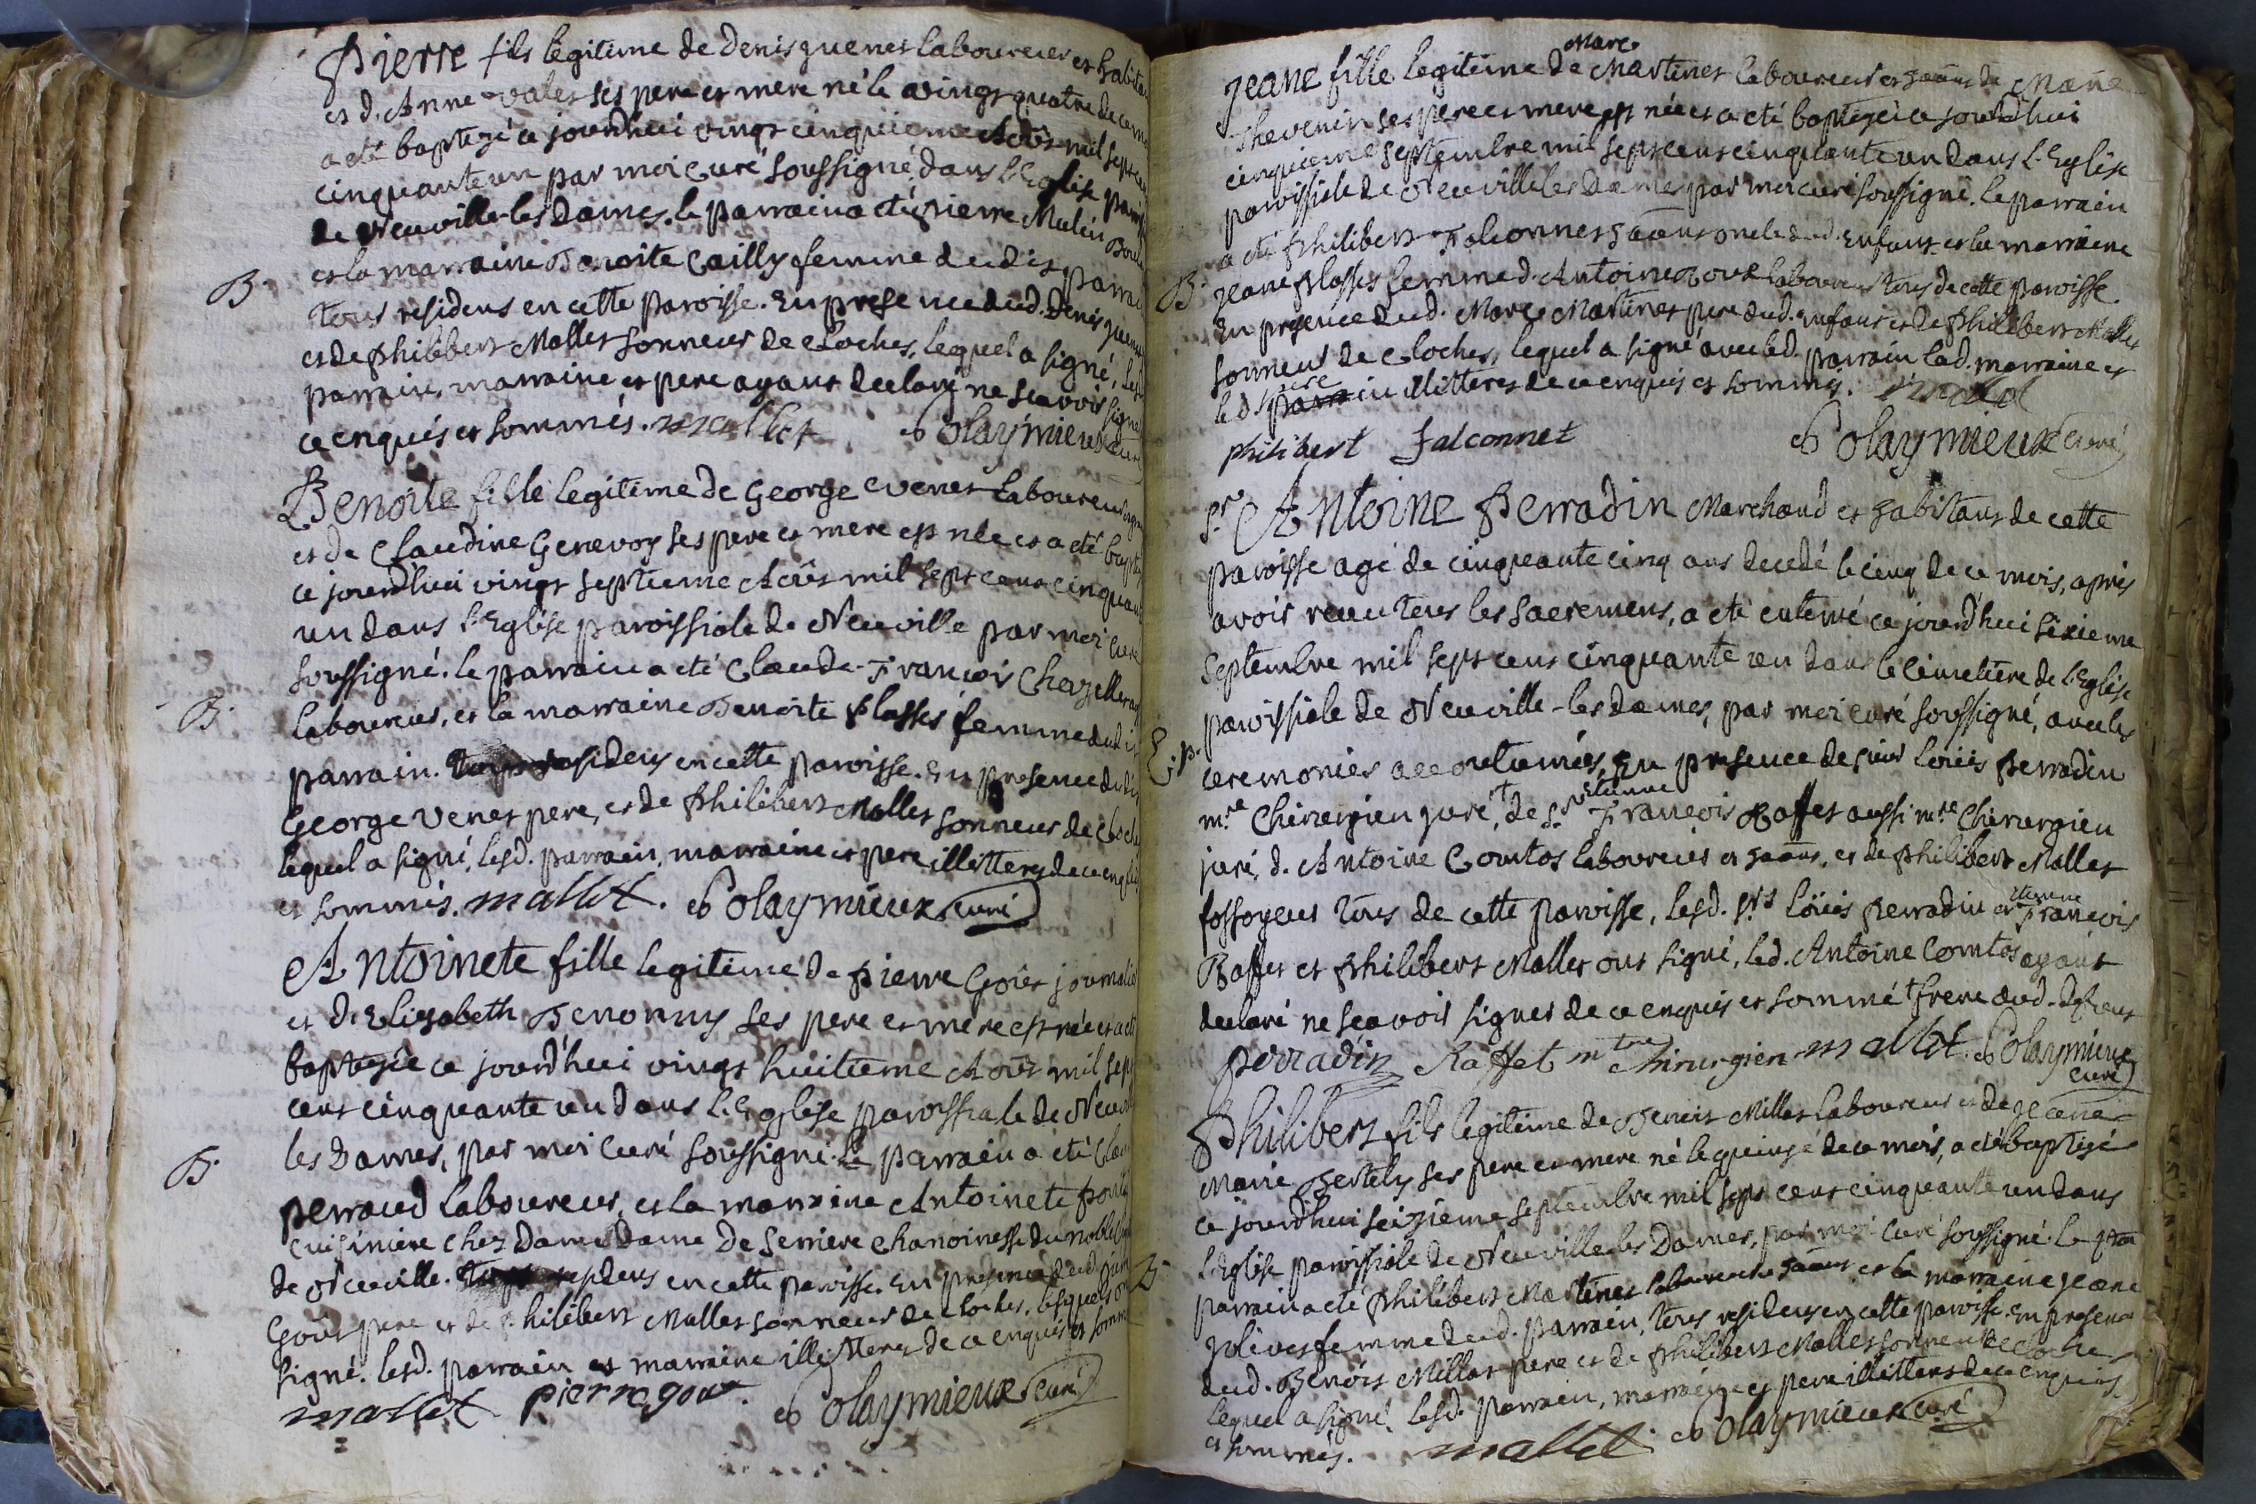 Pierre fils legitime de Denis quenet laboureur et habitan
et d. Anne valet ses pere et mere né le vingt quatre de ce mo
a eté baptizé ce jourd'hui vingt cinquieme Aout mil sept cen
cinquante un par moi curé soussigné dans l'Eglise paroiss
de Neuville-les Dames. le parrain a eté pierre Mulin
et la marraine Benoite Cailly femme dudit parrai
tous residens en cette paroisse. En presence dud. Denis quenet
et de philibert Mallet sonneur de cloches, lequel a signé, lesd.
parrain, marraine et pere ayant declaré ne scavoir signer
ce enquis et sommés. mallet Polaymieux curé
Benoite fille legitime de George venet laboureur
et de Claudine Genevoy ses pere et mere est née et a eté bapti
ce jourd'hui vingt septieme Aout mil sept cent cinquan
un dans l'Eglise paroissiale de Neuville par moi curé
soussigné. le parrain a eté Claude-François
B. laboureur, et la marraine Benoite plasses femme dudit
parrain. Tous residens en cette paroisse. En presence dudit
George venet pere, et de philibert Mallet sonneur de cloch
lequel a signé, lesd. parrain, marraine et pere illitterés de ce enquis
et sommés. mallet. Polaymieux curé
Antoinete fille legitime de pierre Goux journalie
et d. Elizabeth Benonny ses pere et mere est née et a eté
baptizée ce jourd'hui vingt huitieme Aout mil sept
cent cinquante un dans l'Eglise paroissiale de Neuvi
les Dames, par moi curé soussigné. le parrain a eté Clau
B. perraud laboureur, et la marraine Antoinete
cuisiniere chez Dame Dame de Serriere chanoinesse du noble
de Neuville. Tous residens en cette paroisse. En presence dud. pierre
Goux pere et de philibert Mallet sonneur de cloches, lesquels on
signé. lesd. parrain et marraine illitterés de ce enquis et somm
mallet pierre goux. Polaymieux curé
Jeane fille legitime de Marc Martinet laboureur et haānt de Marie
Thevenin ses pere et mere est née et a eté baptizée ce jourd'hui
cinquieme septembre mil sept cent cinquante un dans l'Eglise
paroissiale de Neuville les Dames par moi curé soussigné. le parrain
a eté philibert Falconnet haānt oncle dud. Enfant et la marraine
B. Jeane plasses femme d. Antoine laboureur tous de cette paroisse.
En presence dud. Marc Martinet pere dud. enfant et de philibert Mallet
sonneur de cloches, lequel a signé avec led. parrain lad. marraine et
led. pere illitterés de ce enquis et sommés. mallet
philibert falconnet Polaymieux curé
Sr Antoine Perradin Marchand et habitant de cette
paroisse agé de cinquante cinq ans decedé le cinq de ce mois, après
avoir receu tous les sacremens, a eté enterré ce jourd'hui sixieme
septembre mil sept cent cinquante un dans le cimetiere de l'Eglise
paroissiale de Neuville-les dames, par moi curé soussigné, avec les
ceremonies accoutumées, En presence de sieur Loüis perradin
mre Chirurgien juré, † de Sr Etienne François Raffet aussi mre Chirurgien
juré, d. Antoine Comtos laboureur et haānt, et de philibert Mallet
fossoyeur tous de cette paroisse, lesd. Srs Loüis perradin et Etienne François
Raffet et philibert Mallet ont signé, led. Antoine Comtos ayant
declaré ne scavoir signer de ce enquis et sommé † frere dud. Defunt
perradin Raffet mtre Chirurgien mallet. Polaymieux
curé
Philibert fils legitime de Benoit Millet laboureur et de Jeane
Marie Bertely ses pere et mere né le quinze de ce mois, a eté baptizé
ce jourd'hui seizieme septembre mil sept cent cinquante un dans
l'Eglise paroissiale de Neuville les Dames, par moi curé soussigné. le
B. parrain a eté philibert Martinet laboureur haānt et la marraine Jeane
Jolivet femme dud. parrain, tous residens en cette paroisse. En presence
dud. Benoit Millet pere et de philibert Mallet sonneur de cloche
lequel a signé. lesd. parrain, marraine et pere illitterés de ce enquis
et sommés. mallet Polaymieux curé